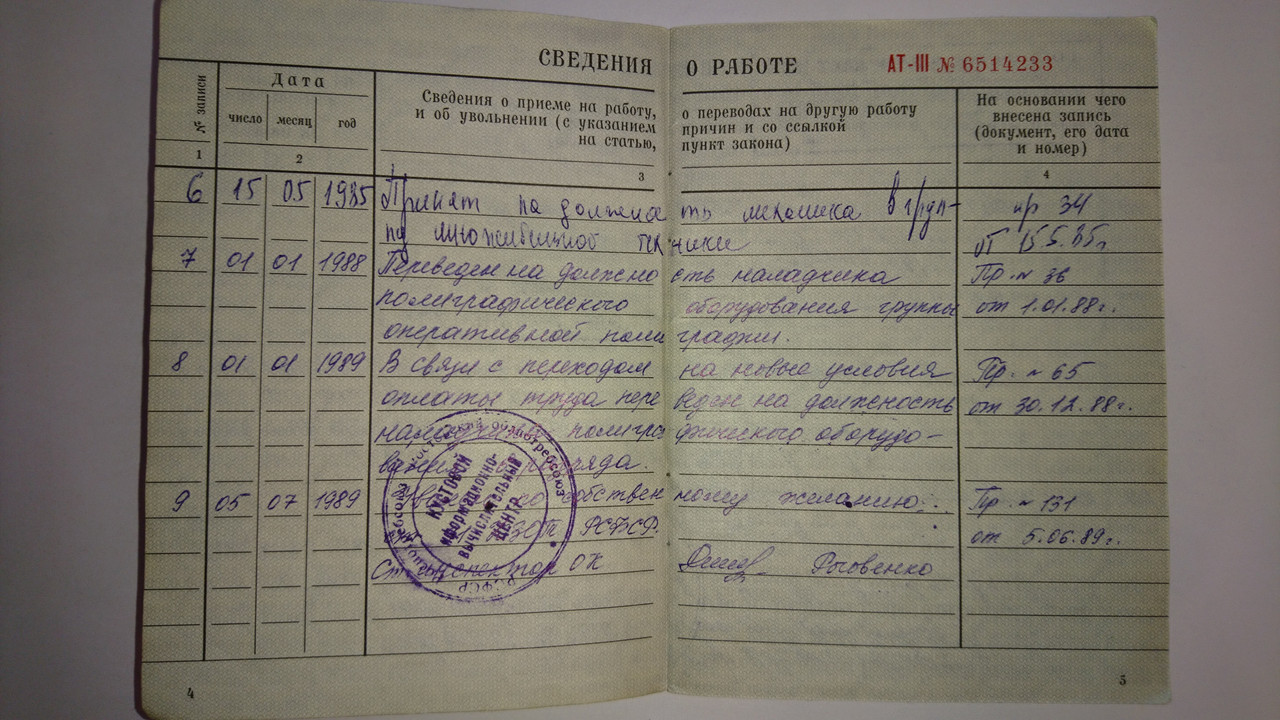 СВЕДЕНИЯ О РАБОТЕ АТ-III № 6514233
№ записи
Дата
число месяц год
Сведения о приеме на работу, о переводах на другую работу
и об увольнении (с указанием причин и со ссылкой
на статью, пункт закона)
На основании чего
внесена запись
(документ, его дата
и номер)
1 2 3 4
6 15 05 1985 Принят на должность механика в груп- пр 34
пу множительной техники от 15.5.85г
7 01 01 1988 Переведен на должность наладчика Пр. № 36
полиграфического оборудования группы от 1.01.88г.
оперативной полиграфии.
8 01 01 1989 В связи с переходом на новые условия Пр. № 65
оплаты труда переведен на должность от 30.12.88г.
наладчика полиграфического оборудо-
вания разряда.
9 05 07 1989 по собственному желанию Пр. № 131
РСФСР. от 5.06.89г.
Ст. инспектор ОК
КУСТОВОЙ
ИНФОРМАЦИОННО-
ВЫЧИСЛИТЕЛЬНЫЙ
ЦЕНТР
РСФСР
4 5